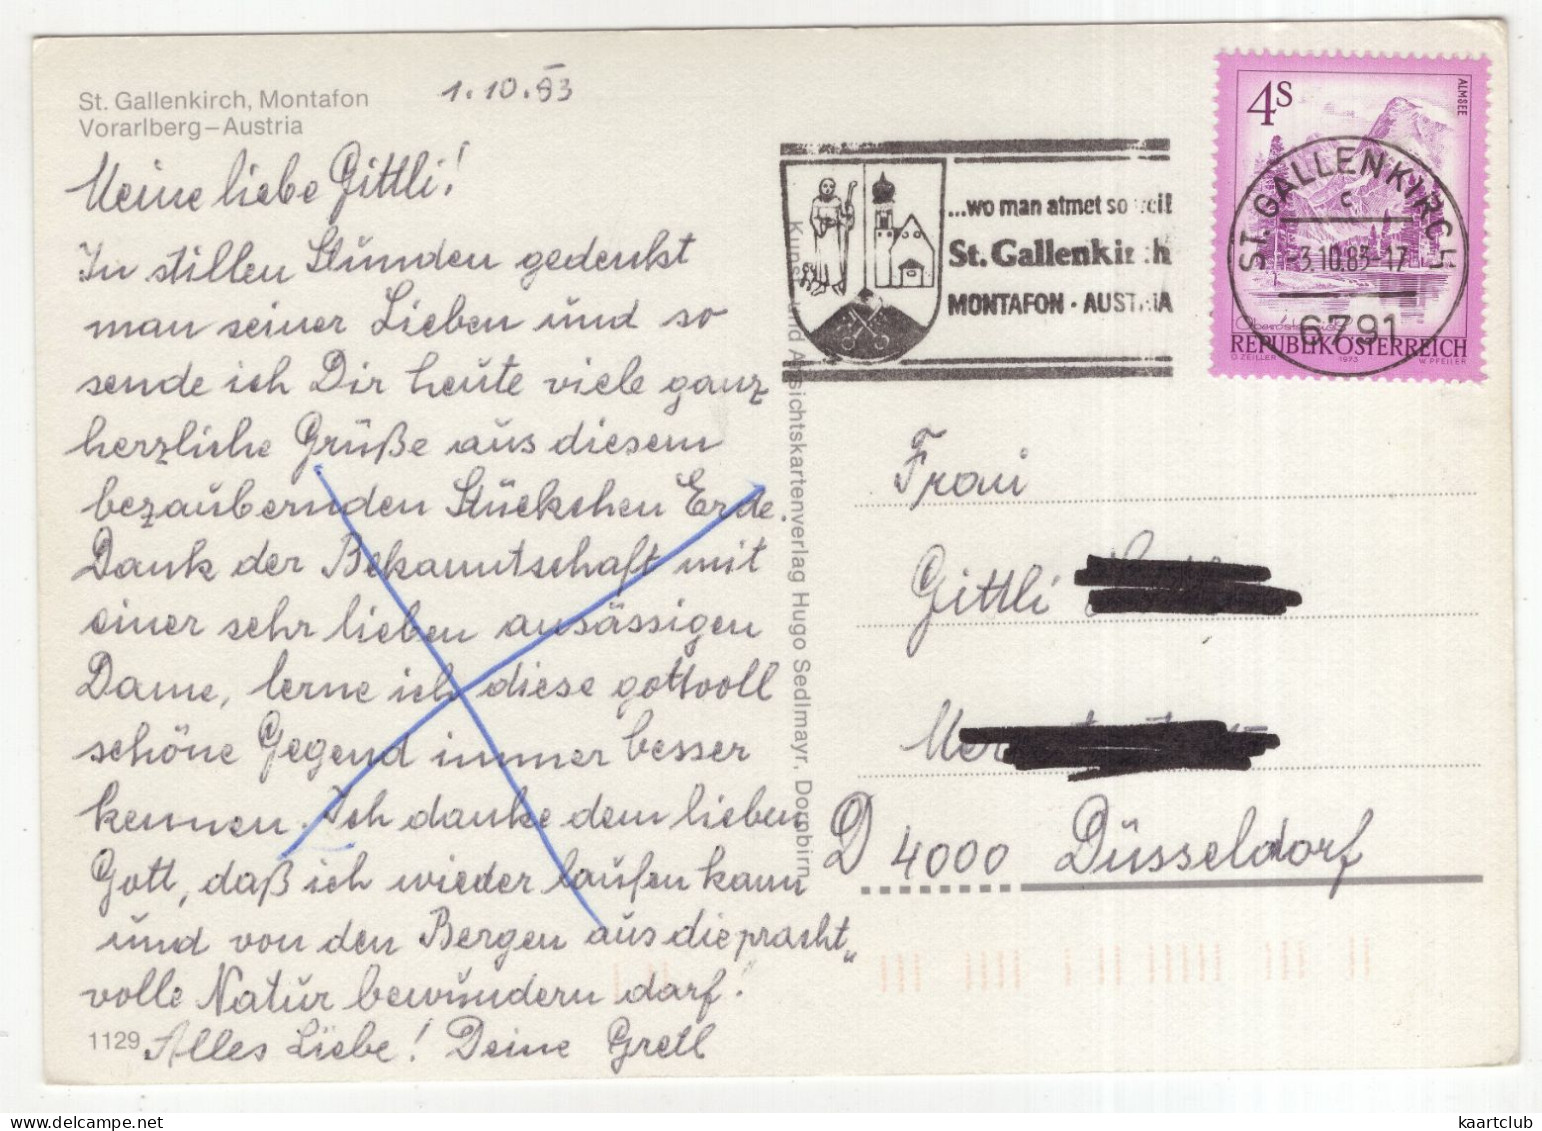 St. Gallenkirch, Montafon
Vorarlberg – Austria
1.10.83
Meine liebe Gittli!
In stillen Stunden gedenkt
man seiner Lieben und so
sende ich Dir heute viele ganz
herzliche Grüße aus diesem
bezaubernden Stückchen Erde.
Dank der Bekanntschaft mit
einer sehr lieben ansässigen
Dame, lerne ich diese gottvoll
schöne Gegend immer besser
kennen. Ich danke dem lieben
Gott, daß ich wieder laufen kann
und von den Bergen aus die pracht„
volle Natur bewundern darf!
1129 Alles Liebe! Deine Gretl
Kunst- und Ansichtskartenverlag Hugo Sedlmayr, Dornbirn
...wo man atmet so
St. Gallenkirch
MONTAFON · AUSTRIA
4S
ALMSEE
ST. GALLENKIRCH
c
-3.10.83-17
6791
REPUBLIK ÖSTERREICH
O. ZEILLER 1973 W. PFEILER
Frau
Gittli
D 4000 Düsseldorf
kaartclub